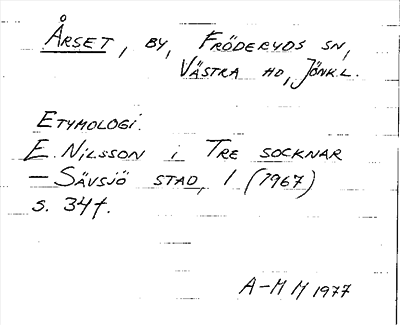 Årset, by, Fröderyds sn,
Västra hd, Jönk.l.
Etymologi.
E. Nilsson i Tre socknar
– Sävsjö stad, 1 (1967)
s. 34f.
A–M M 1977